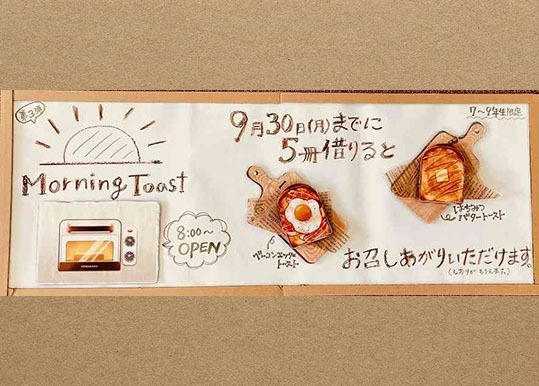 第3弾
7〜9年生限定
9月30日(月)までに
5冊借りると
Morning Toast
8:00〜
OPEN
ベーコンエッグ
トースト
はちみつ
バタートースト
お召しあがりいただけます。
(しおりがもらえます。)